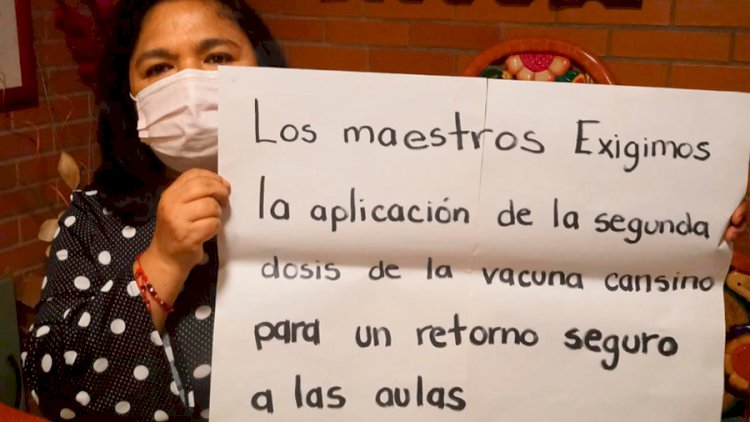 Los maestros Exigimos
la aplicación de la segunda
dosis de la vacuna cansino
para un retorno seguro
a las aulas